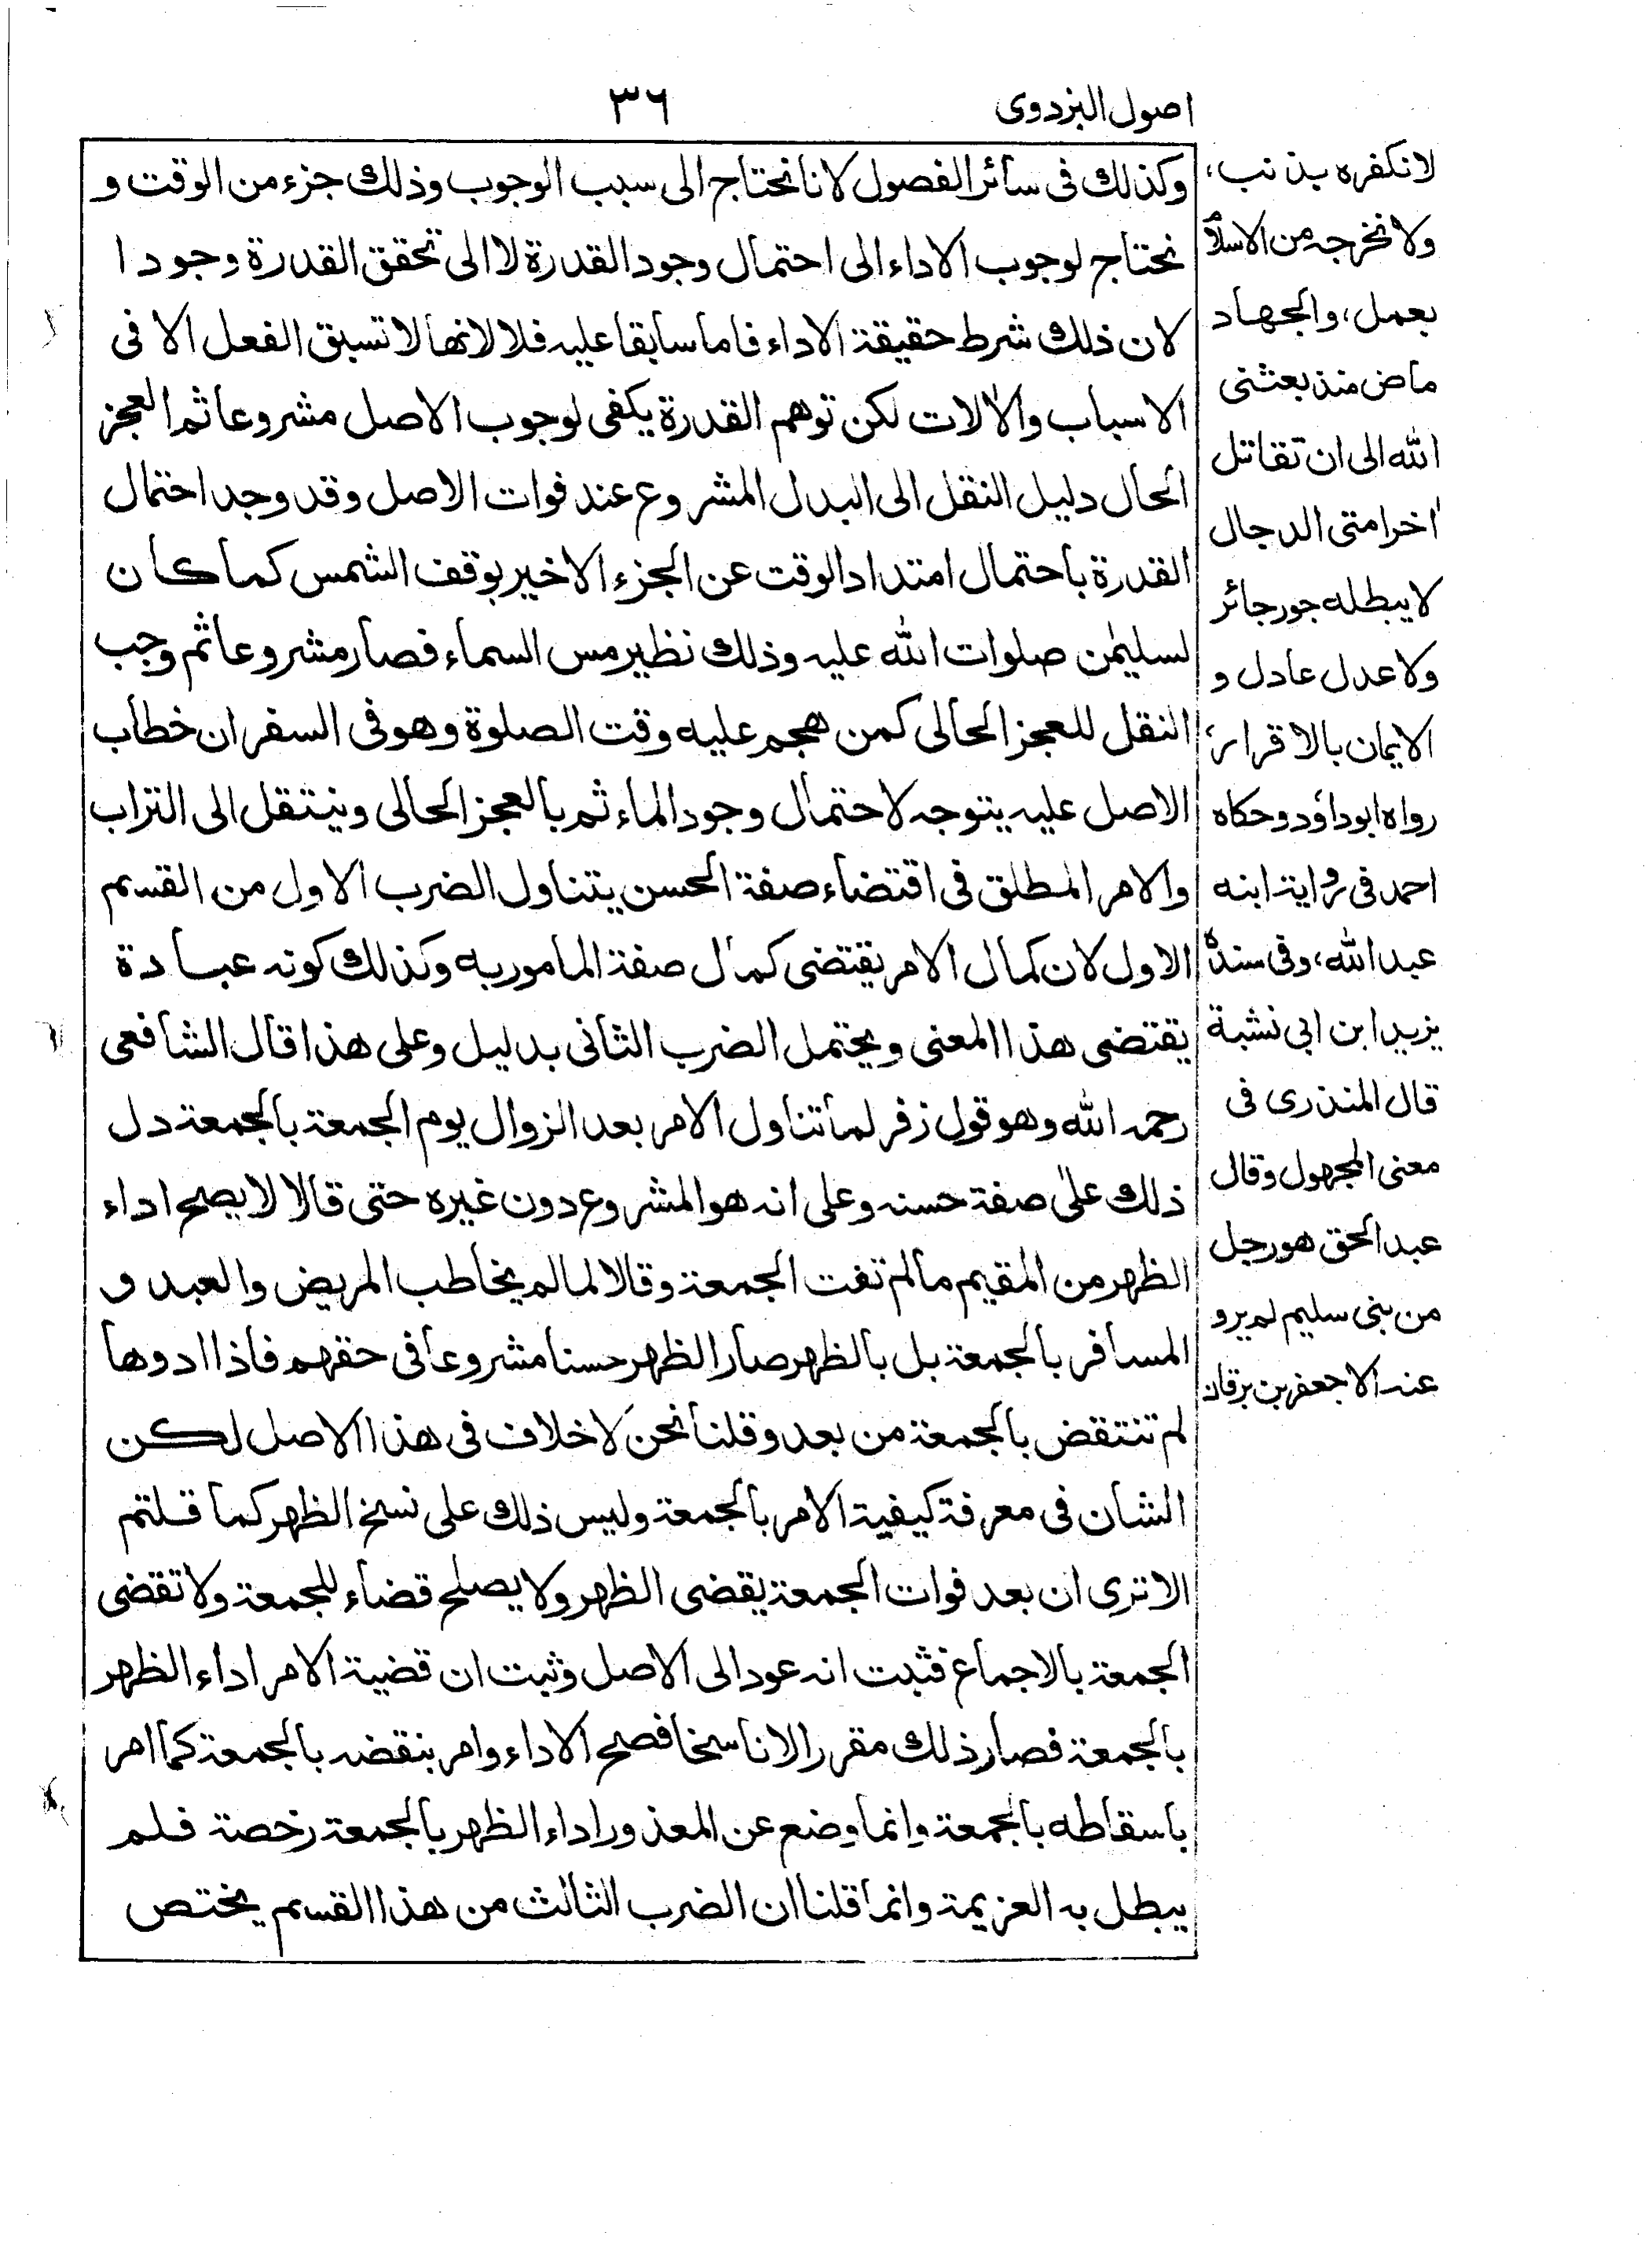 اصول البزدوی
٣٦
وكذلك فى سائر الفصول لانا نحتاج الى سبب الوجوب وذلك جزء من الوقت و
نحتاج لوجوب الاداء الى احتمال وجود القدرة لا الى تحقق القدرة وجودا
لان ذلك شرط حقيقة الاداء فاما سابقا عليه فلا لانها لا تسبق الفعل الا فى
الاسباب والالات لكن توهم القدرة يكفى لوجوب الاصل مشروعا ثم العجز
الحال دليل النقل الى البدل المشروع عند فوات الاصل وقد وجد احتمال
القدرة باحتمال امتداد الوقت عن الجزء الاخير بوقف الشمس كما كان
لسليمٰن صلوات الله عليه وذلك نظير مس السماء فصار مشروعا ثم وجب
النقل للعجز الحالى كمن هجم عليه وقت الصلوة وهو فى السفر ان خطاب
الاصل عليه يتوجه لاحتمال وجود الماء ثم بالعجز الحالى وينتقل الى التراب
والامر المطلق فى اقتضاء صفة الحسن يتناول الضرب الاول من القسم
الاول لان كمال الامر يقتضى كمال صفة المامور به وكذلك كونه عبادة
يقتضى هذا المعنى ويحتمل الضرب الثانى بدليل وعلى هذا قال الشافعى
رحمه الله وهو قول زفر لما تناول الامر بعد الزوال يوم الجمعة بالجمعة دل
ذلك على صفة حسنه وعلى انه هو المشروع دون غيره حتى قالا لا يصح اداء
الظهر من المقيم مالم تفت الجمعة وقالا لما لم يخاطب المريض والعبد و
المسافر بالجمعة بل بالظهر صار الظهر حسنا مشروعا فى حقهم فاذا ادوها
لم تنتقض بالجمعة من بعد وقلنا نحن لا خلاف فى هذا الاصل لكن
الشان فى معرفة كيفية الامر بالجمعة وليس ذلك على نسخ الظهر كما قلتم
الا ترى ان بعد فوات الجمعة يقضى الظهر ولا يصلح قضاء للجمعة ولا تقضى
الجمعة بالاجماع فثبت انه عود الى الاصل وثبت ان قضية الامر اداء الظهر
بالجمعة فصار ذلك مقررا لا ناسخا فصح الاداء وامر بنقضه بالجمعة كما امر
باسقاطه بالجمعة وانما وضع عن المعذور اداء الظهر بالجمعة رخصة فلم
يبطل به العزيمة وانما قلنا ان الضرب الثالث من هذا القسم يختص
لا نكفره بذنب،
ولا نخرجه من الاسلام
بعمل، والجهاد
ماض منذ بعثنى
الله الى ان تقاتل
اخر امتى الدجال
لا يبطله جور جائر
ولا عدل عادل و
الايمان بالاقرار،
رواه ابوداؤد وحكاه
احمد فى رواية ابنه
عبد الله، وفى سنده
يزيد ابن ابى نشبة
قال المنذرى فى
معنى المجهول وقال
عبد الحق هو رجل
من بنى سليم لم يرو
عنه الا جعفر بن برقان